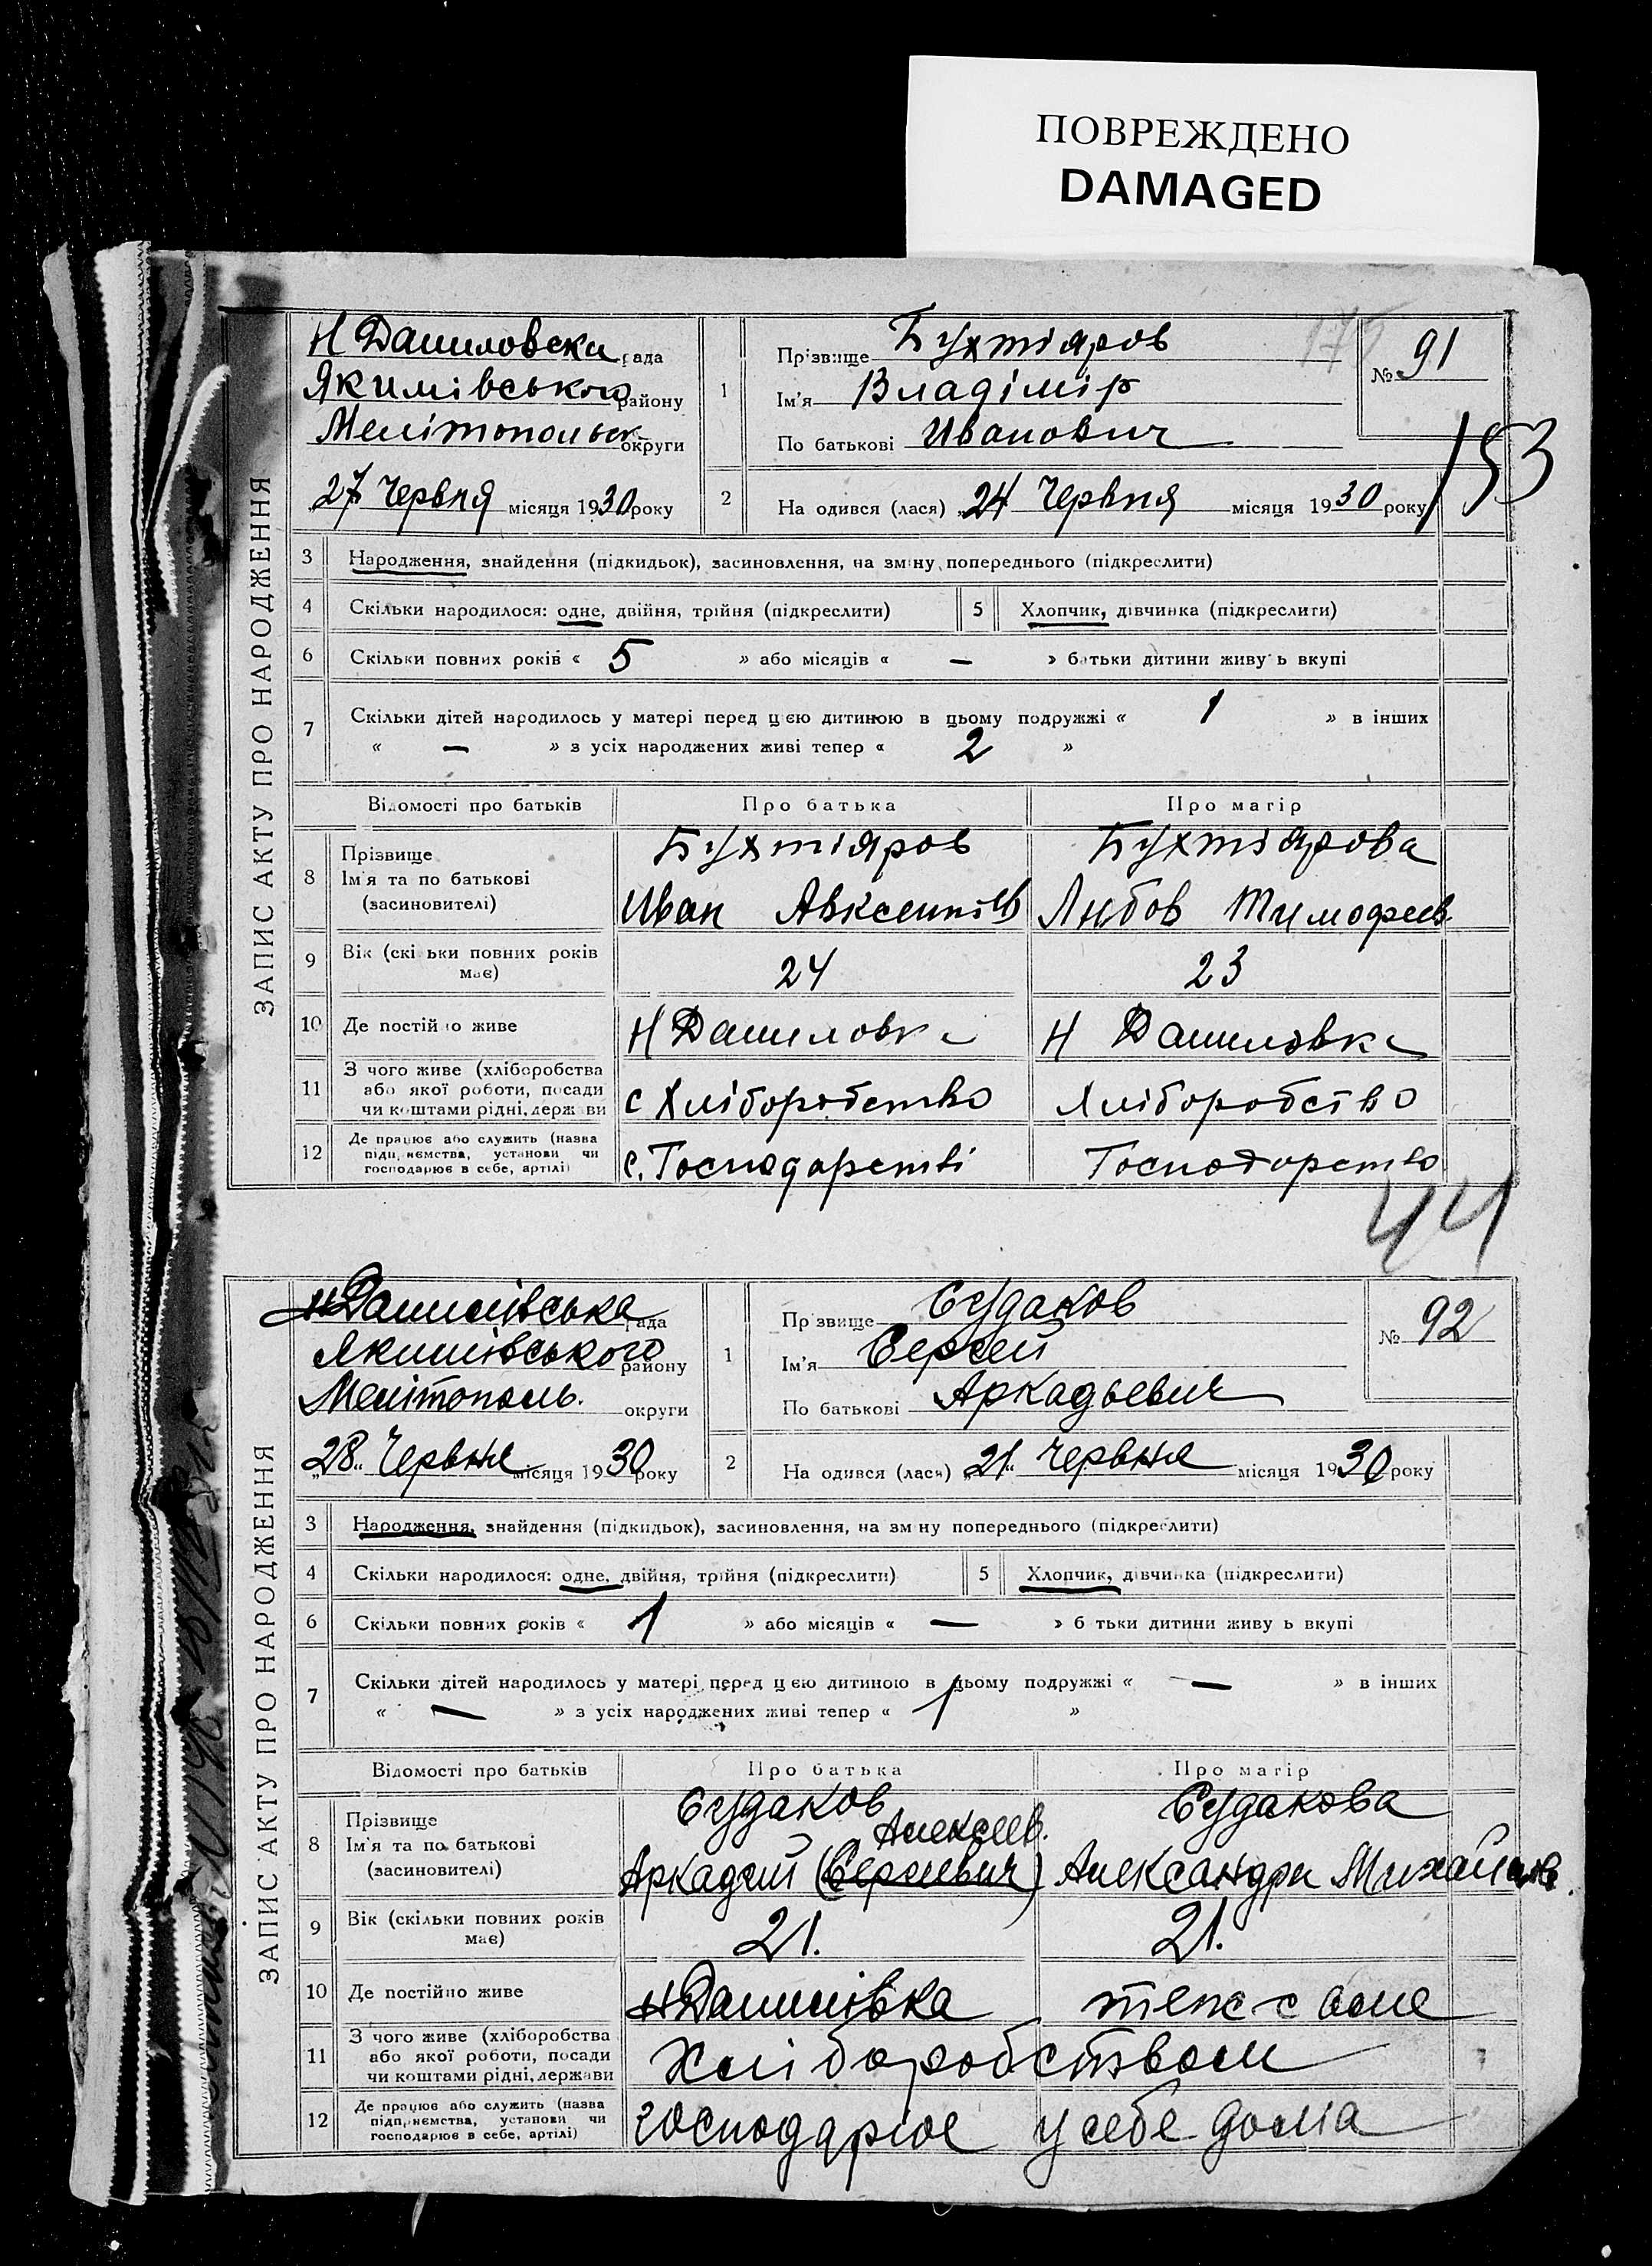 ПОВРЕЖДЕНО
DAMAGED
ЗАПИС АКТУ ПРО НАРОДЖЕННЯ
Н Даниловска рада
Якимівського району
Мелітопольск округи
27 Червня місяця 1930 року
1
Прізвище Бухтіяров
Ім'я Владімір
По батькові Иванович
№ 91
153
2
На одився (лася) „24 Червня місяця 1930 року
3 Народження, знайдення (підкидьок), засиновлення, на зміну попереднього (підкреслити)
4 Скільки народилося: одне, двійня, трійня (підкреслити) 5 Хлопчик, дівчинка (підкреслити)
6 Скільки повних років « 5 » або місяців « — » батьки дитини живуть вкупі
7 Скільки дітей народилось у матері перед цією дитиною в цьому подружжі « 1 » в інших
« — » з усіх народжених живі тепер « 2 »
Відомості про батьків Про батька Про матір
8 Прізвище
Ім'я та по батькові
(засиновителі)
Бухтіяров Бухтіярова
Иван Авксентіев Любов Тимофеев.
9 Вік (скі ьки повних років має) 24 23
10 Де постійно живе Н Даниловка Н Даниловка
11 З чого живе (хліборобства або якої роботи, посади чи коштами рідні, держави с Хліборобство Хліборобство
12 Де працює або служить (назва підприємства, установи чи господарює в себе, артілі) с. Господарстві Господарство
44
ЗАПИС АКТУ ПРО НАРОДЖЕННЯ
н Данилівська рада
Якимівського району
Мелітополь. округи
„28“ Червня місяця 1930 року
1
Прізвище Судаков
Ім'я Сергей
По батькові Аркадьевич
№ 92
2
На одився (лася) „21“ Червня місяця 1930 року
3 Народження, знайдення (підкидьок), засиновлення, на зміну попереднього (підкреслити)
4 Скільки народилося: одне, двійня, трійня (підкреслити) 5 Хлопчик, дівчинка (підкреслити)
6 Скільки повних років « 1 » або місяців « — » б тьки дитини живу ь вкупі
7 Скільки дітей народилось у матері перед цією дитиною в цьому подружжі « — » в інших
« — » з усіх народжених живі тепер « 1 »
Відомості про батьків Про батька Про матір
8 Прізвище
Ім'я та по батькові
(засиновителі)
Судаков Судакова
Алексеев.
Аркадий (Сергеевич) Александра Михайлов.
9 Вік (скільки повних років має) 21. 21.
10 Де постійно живе н Данилівка
11 З чого живе (хліборобства або якої роботи, посади чи коштами рідні, держави Хліборобством
12 Де працює або служить (назва підприємства, установи чи господарює в себе, артілі) господарює у себе дома